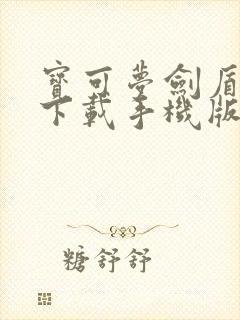 寶可夢劍盾
下載手機版
糖舒舒